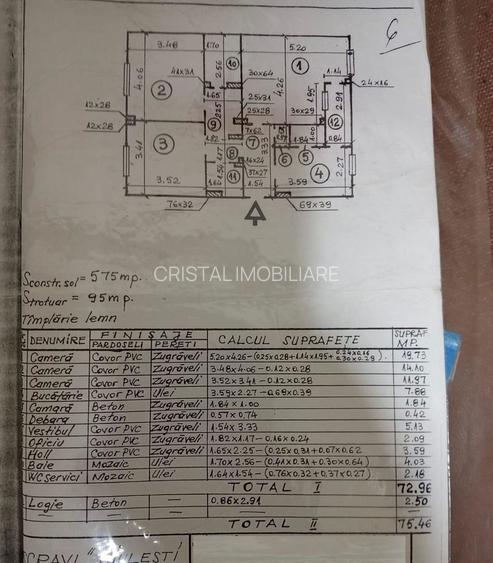 6
3.48
1.70
5.20
4.06
41x31
2.56
10
30x64
4.26
1
1.14
24x16
2
1.65
25x31
25x28
30x29
1.95
2.91
12
12x28
12x28
9
2.25
1.82
7x62
7
3.33
1.84
1.00
0.84
3.41
3
8
1.17
16x24
6
5
4
2.27
3.52
1.54
11
37x27
1.54
3.59
76x32
69x39
S constr. sol = 575 mp.
S trotuar = 95 mp.
Tîmplărie lemn
CRISTAL IMOBILIARE
DENUMIRE FINISAJE CALCUL SUPRAFEȚE SUPRAF. MP.
PARDOSELI PEREȚI
Cameră Covor PVC Zugrăveli 5.20x4.26-(0.25x0.28+1.14x1.95+0.24x0.16 0.30x0.29) 19.73
Cameră Covor PVC Zugrăveli 3.48x4.06-0.12x0.28 14.10
Cameră Covor PVC Zugrăveli 3.52x3.41-0.12x0.28 11.97
Bucătărie Covor PVC Ulei 3.59x2.27-0.69x0.39 7.88
Cămară Beton Zugrăveli 1.84x1.00 1.84
Debara Beton Zugrăveli 0.57x0.74 0.42
Vestibul Covor PVC Zugrăveli 1.54x3.33 5.13
Oficiu Covor PVC Zugrăveli 1.82x1.17-0.16x0.24 2.09
Holl Covor PVC Zugrăveli 1.65x2.25-(0.25x0.31+0.07x0.62 3.59
Baie Mozaic Ulei 1.70x2.56-(0.41x0.31+0.30x0.64) 4.03
WC Servici Mozaic Ulei 1.64x1.54-(0.76x0.32+0.37x0.27) 2.18
TOTAL I 72.96
Logie Beton — 0.86x2.91 2.50
TOTAL II 75.46